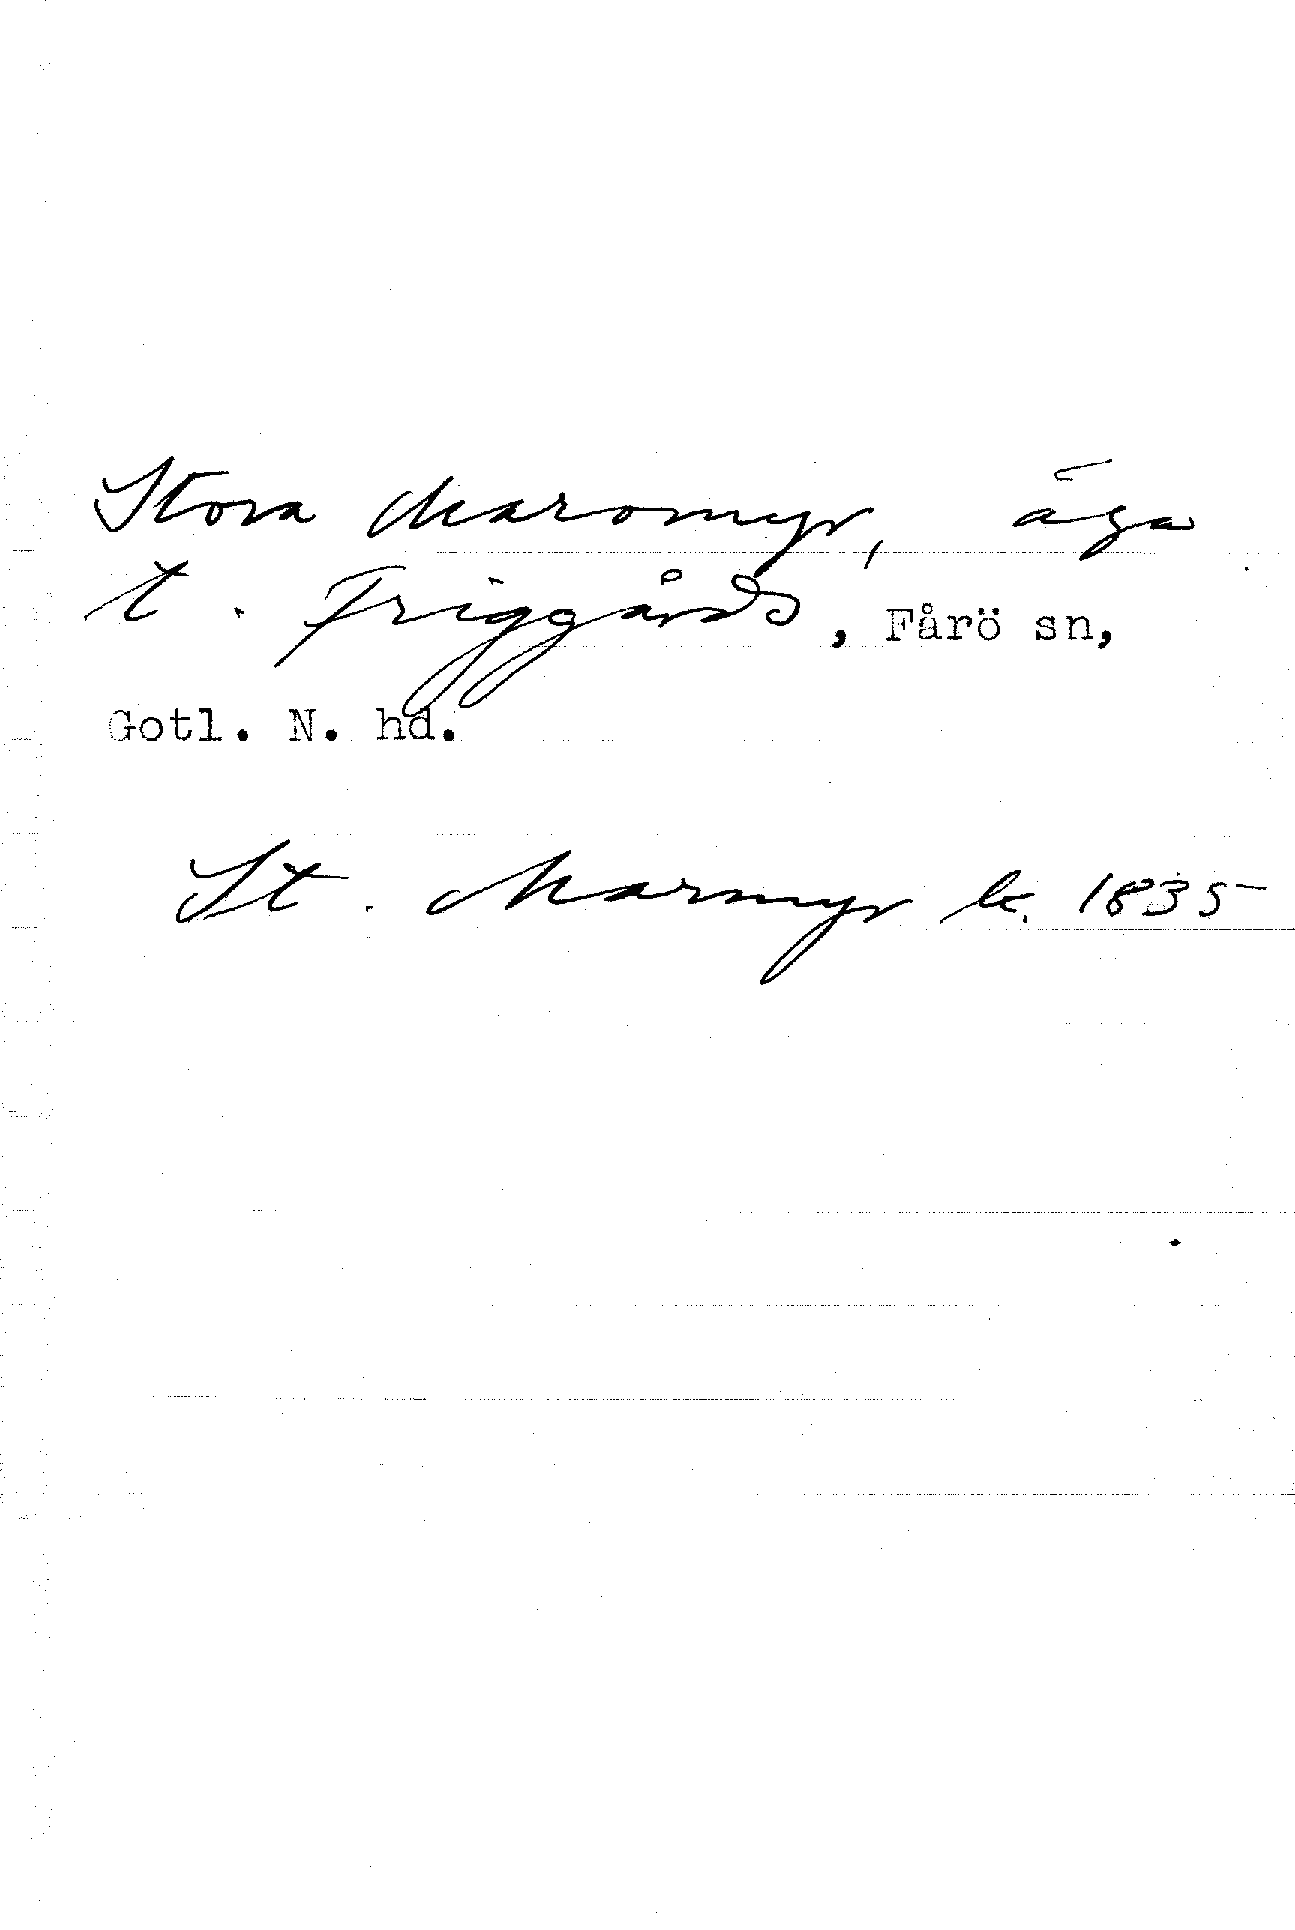 Stora Maromyr, äga
t. Friggårds, Fårö sn,
Gotl. N. hd.
St. Marmyr k. 1835